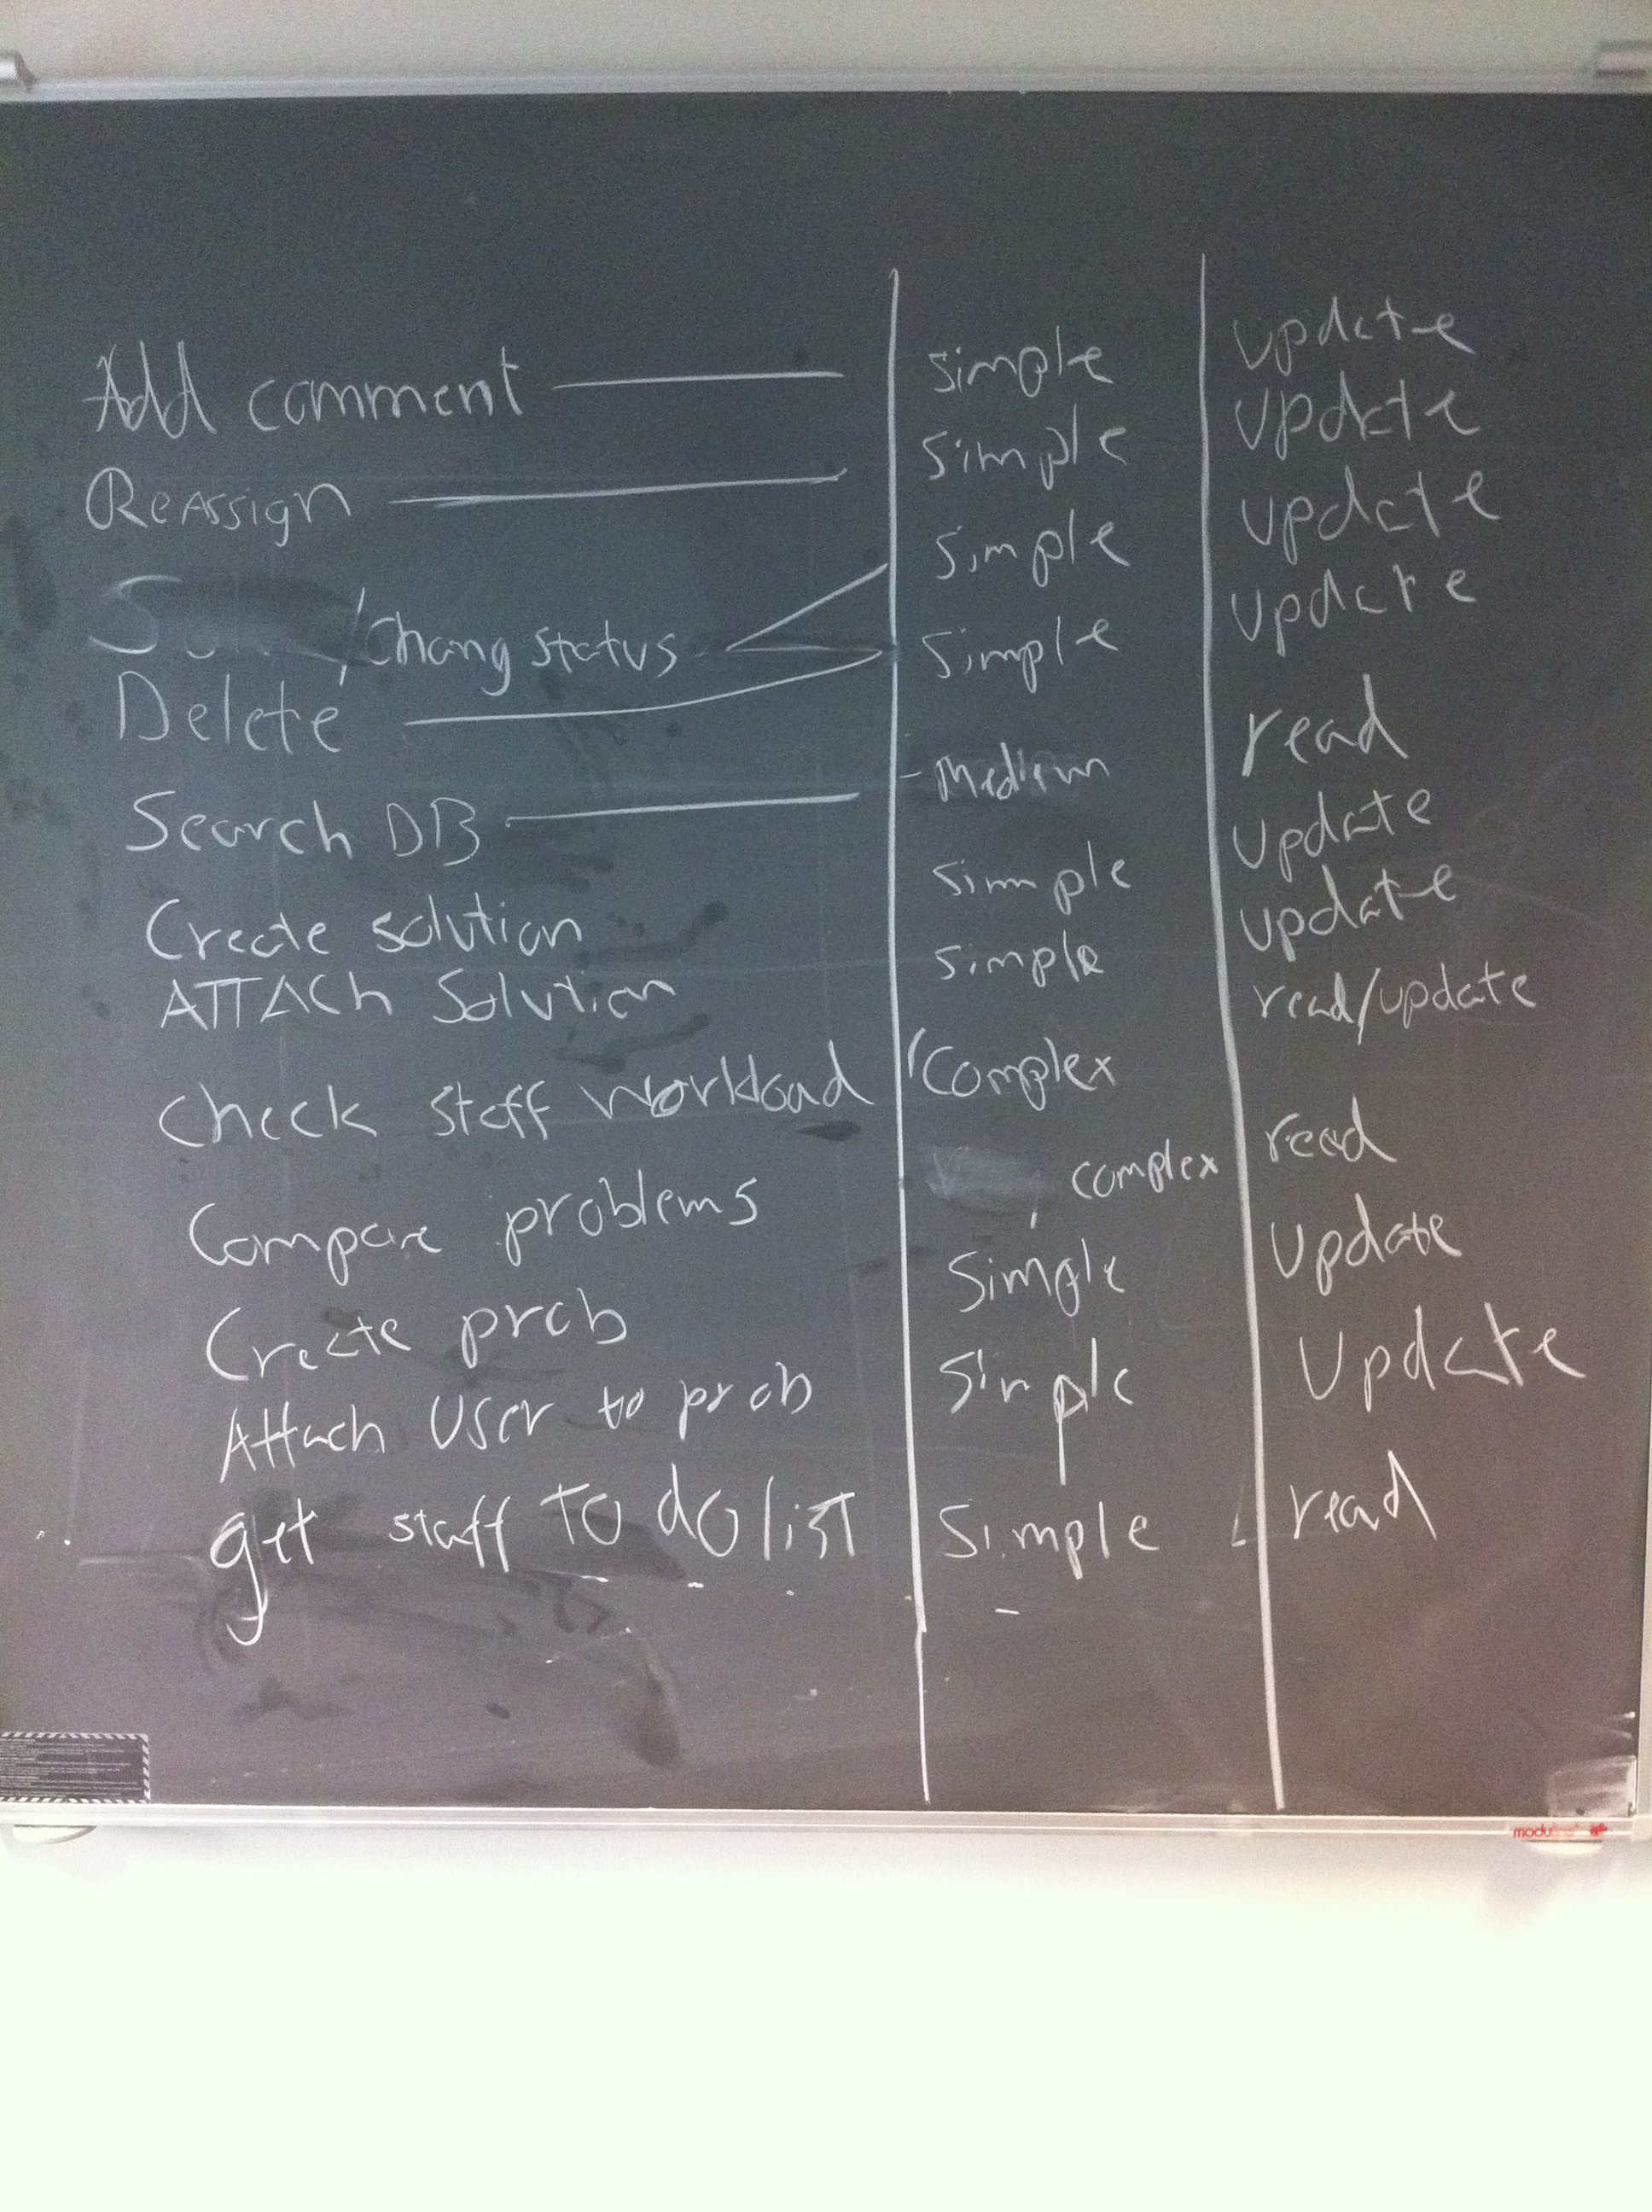 Add comment simple update
ReAssign simple update
/Chang status simple update
Delete simple update
Search DB Medium read
Create solution simple update
ATTACh Solution simple update
Check staff workload Complex read/update
Compare problems complex read
Create prob Simple Update
Attach User to prob Simple Update
get staff TO do list Simple read